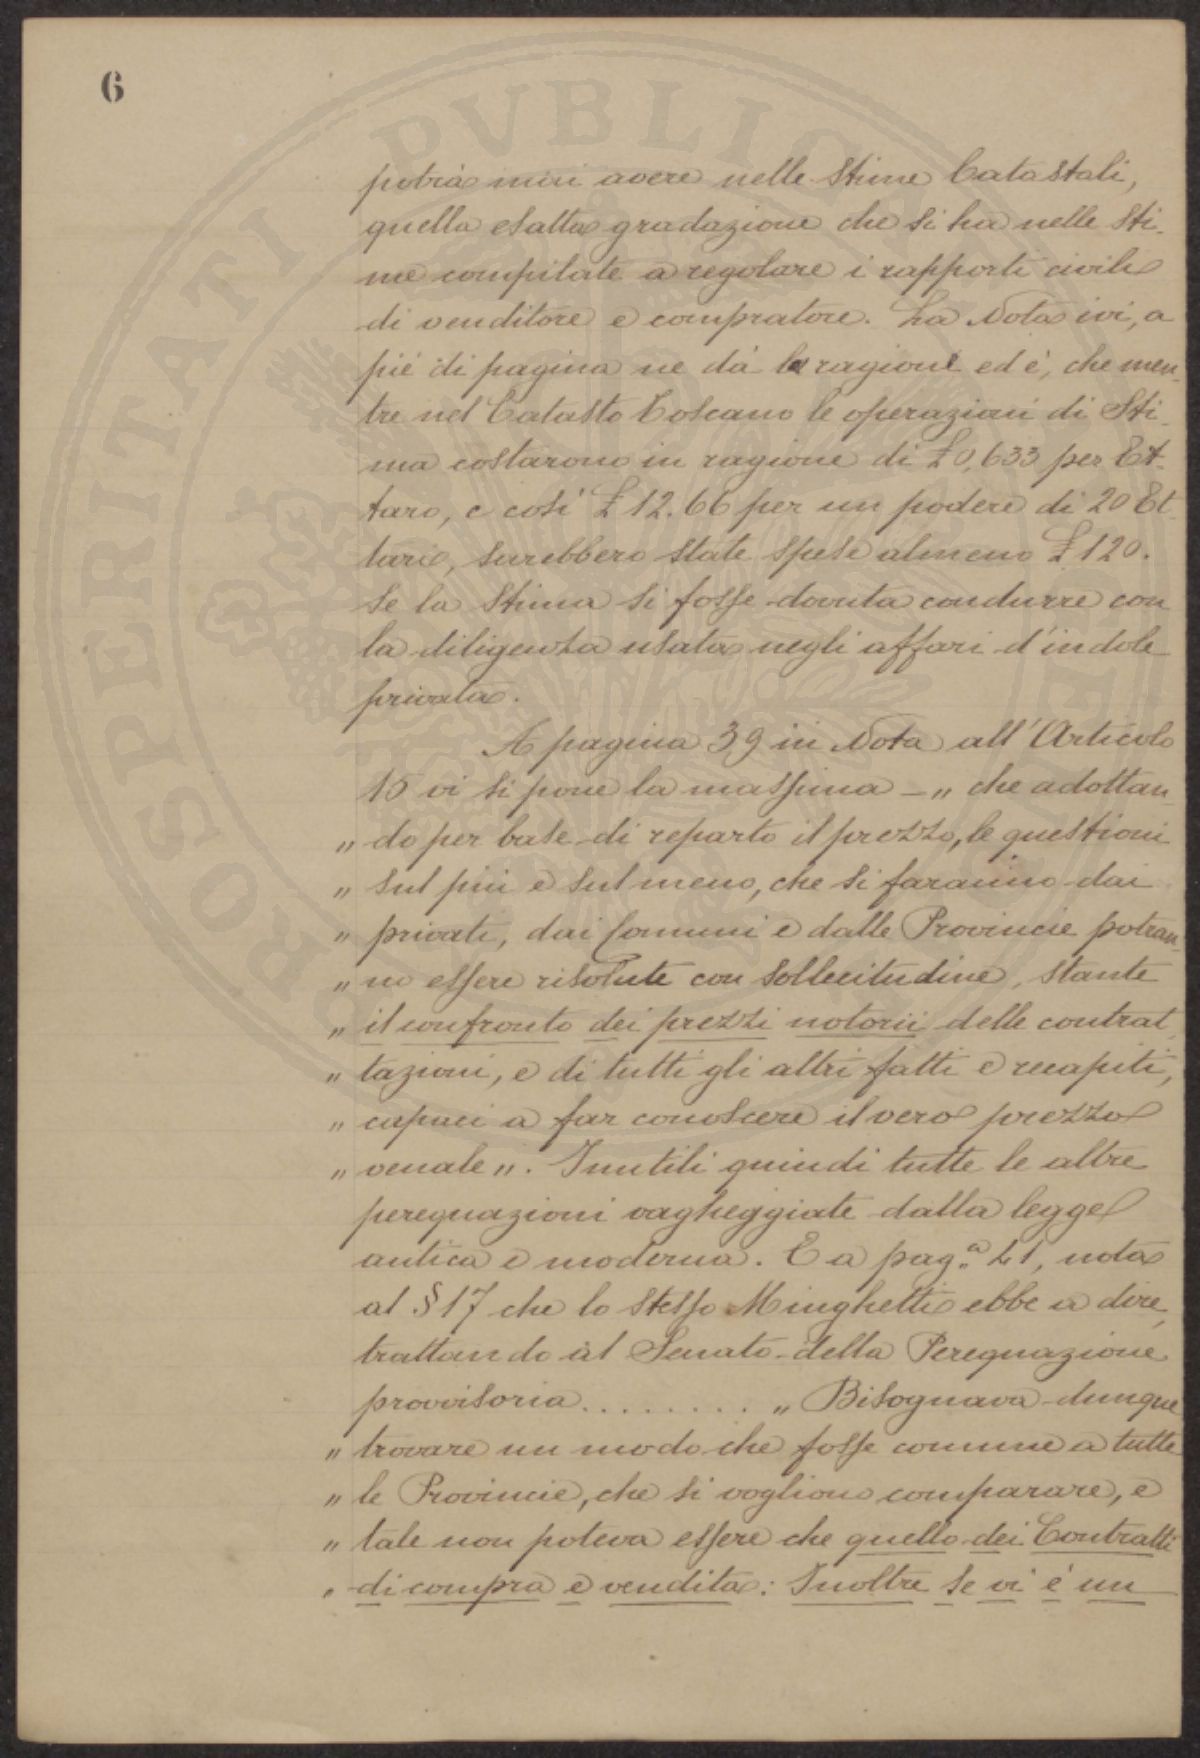 6
potrà mai avere nelle stime Catastali,
quella esatta gradazione che si ha nelle sti-
me compilate a regolare i rapporti civili
di venditore e compratore. La Nota ivi, a
piè di pagina ne dà la ragione ed è, che men-
tre nel Catasto Toscano le operazioni di Sti-
ma costarono in ragione di £ 0,633 per Et-
taro, e così £ 12.66 per un podere di 20 Et-
tari, sarebbero state spese almeno £ 120.
se la Stima si fosse dovuta condurre con
la diligenza usata negli affari d'indole
privata.
A pagina 39 in Nota all'Articolo
15 vi si pone la massima – „ che adottan-
„ do per base di reparto il prezzo, le questioni
„ sul più e sul meno, che si faranno dai
„ privati, dai Comuni e dalle Provincie potran-
„ no essere risolute con sollecitudine, stante
„ il confronto dei prezzi notorii delle contrat
„ tazioni, e di tutti gli altri fatti e recapiti,
„ capaci a far conoscere il vero prezzo
„ venale „. Inutili quindi tutte le altre
perequazioni vagheggiate dalla legge
antica e moderna. E a pag.ª 41, nota
al § 17 che lo stesso Minghetti ebbe a dire,
trattando al Senato della Perequazione
provvisoria ........ „ Bisognava dunque
„ trovare un modo che fosse comune a tutte
„ le Provincie, che si vogliono comparare, e
„ tale non poteva essere che quello dei Contratti
„ di compra e vendita: Inoltre se vi è un
PROSPERITATI PVBLICAE